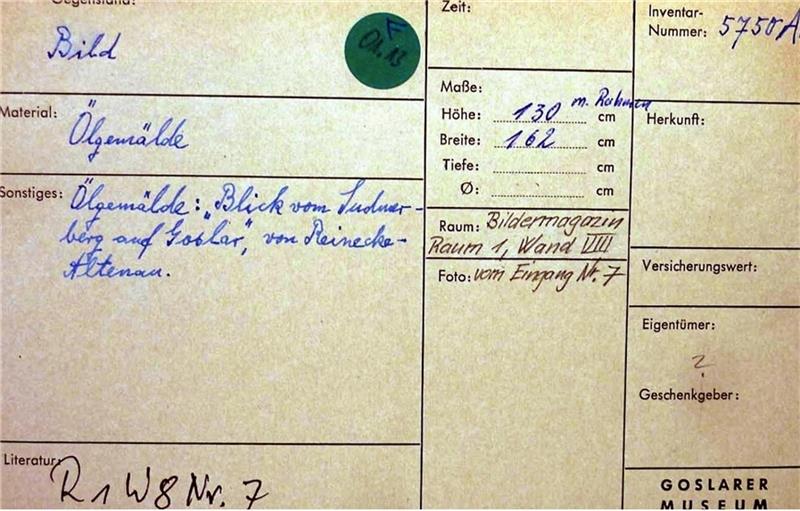 Gegenstand:
Bild
Material:
Ölgemälde
Sonstiges: Ölgemälde: „Blick vom Sudmer-
berg auf Goslar", von Reinecke-
Altenau.
Literatur:
R 1 W 8 Nr. 7
Zeit:
Maße:
Höhe: 130 cm m. Rahmen
Breite: 162 cm
Tiefe: cm
Ø: cm
Raum: Bildermagazin
Raum 1, Wand VIII
Foto: vom Eingang Nr. 7
Inventar-
Nummer: 5750
Herkunft:
Versicherungswert:
Eigentümer:
?
Geschenkgeber:
GOSLARER
MUSEUM